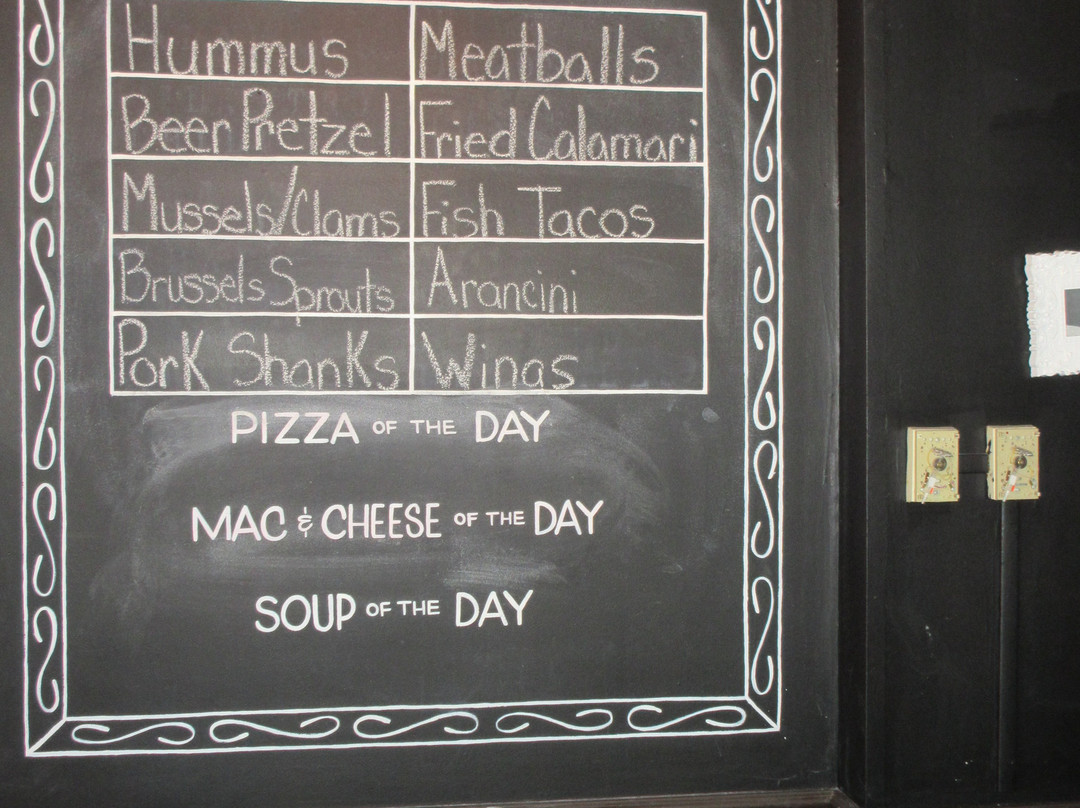 Hummus Meatballs
Beer Pretzel Fried Calamari
Mussels/Clams Fish Tacos
Brussels Sprouts Arancini
Pork Shanks Wings
PIZZA OF THE DAY
MAC & CHEESE OF THE DAY
SOUP OF THE DAY